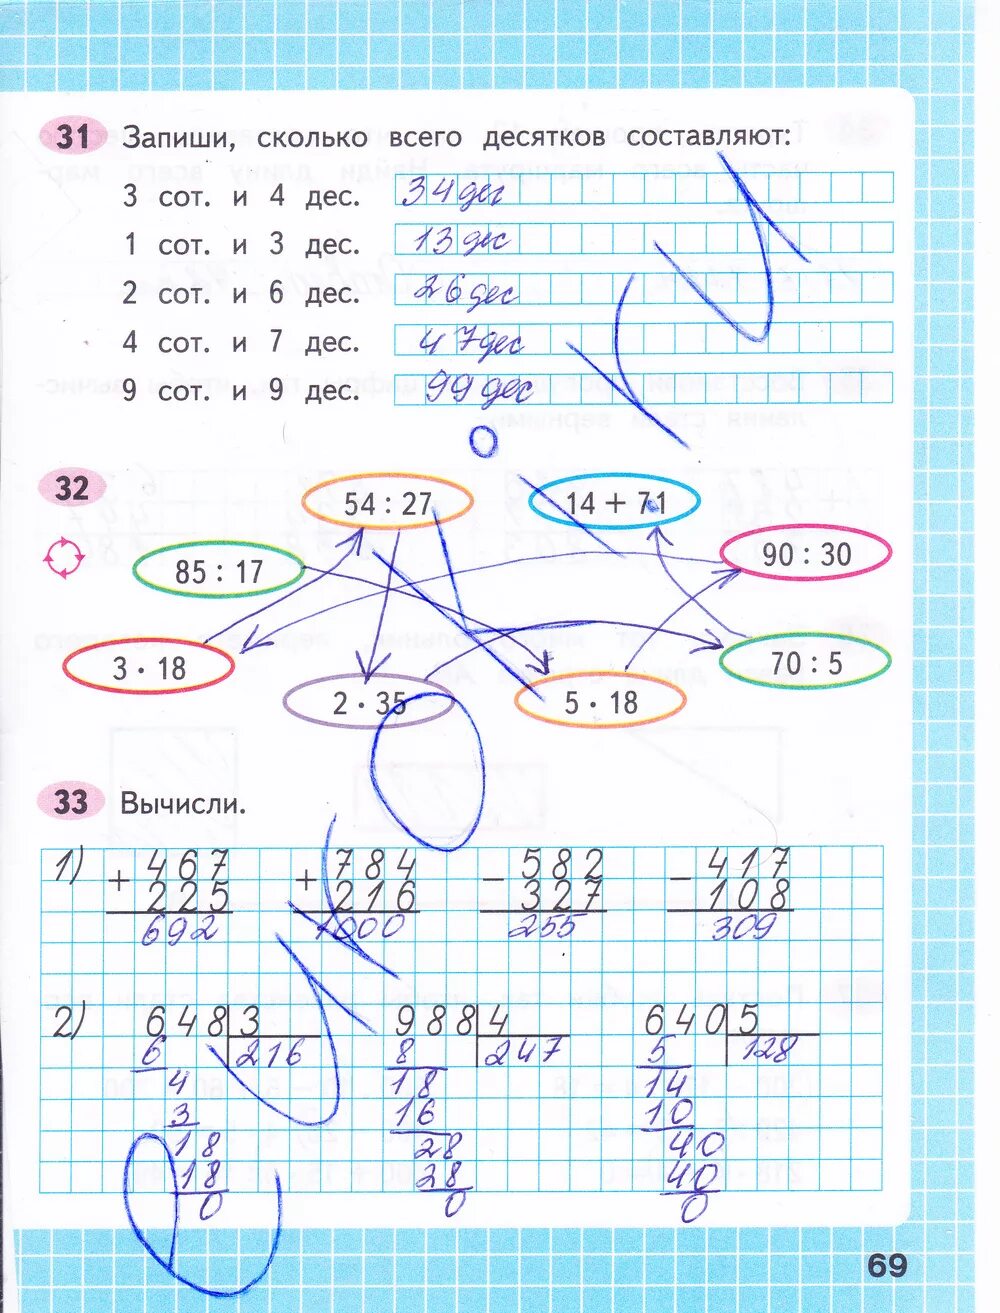 31 Запиши, сколько всего десятков составляют:
3 сот. и 4 дес. 34 дес
1 сот. и 3 дес. 13 дес
2 сот. и 6 дес. 26 дес
4 сот. и 7 дес. 47 дес
9 сот. и 9 дес. 99 дес
32
54 : 27 14 + 71
85 : 17 90 : 30
3 · 18 70 : 5
2 · 35 5 · 18
33 Вычисли.
1) 467 784 582 417
+ 225 + 216 - 327 - 108
692 1000 255 309
2) 648 3 988 4 640 5
6 216 8 247 5 128
4 18 14
3 16 10
18 28 40
18 28 40
0 0 0
69